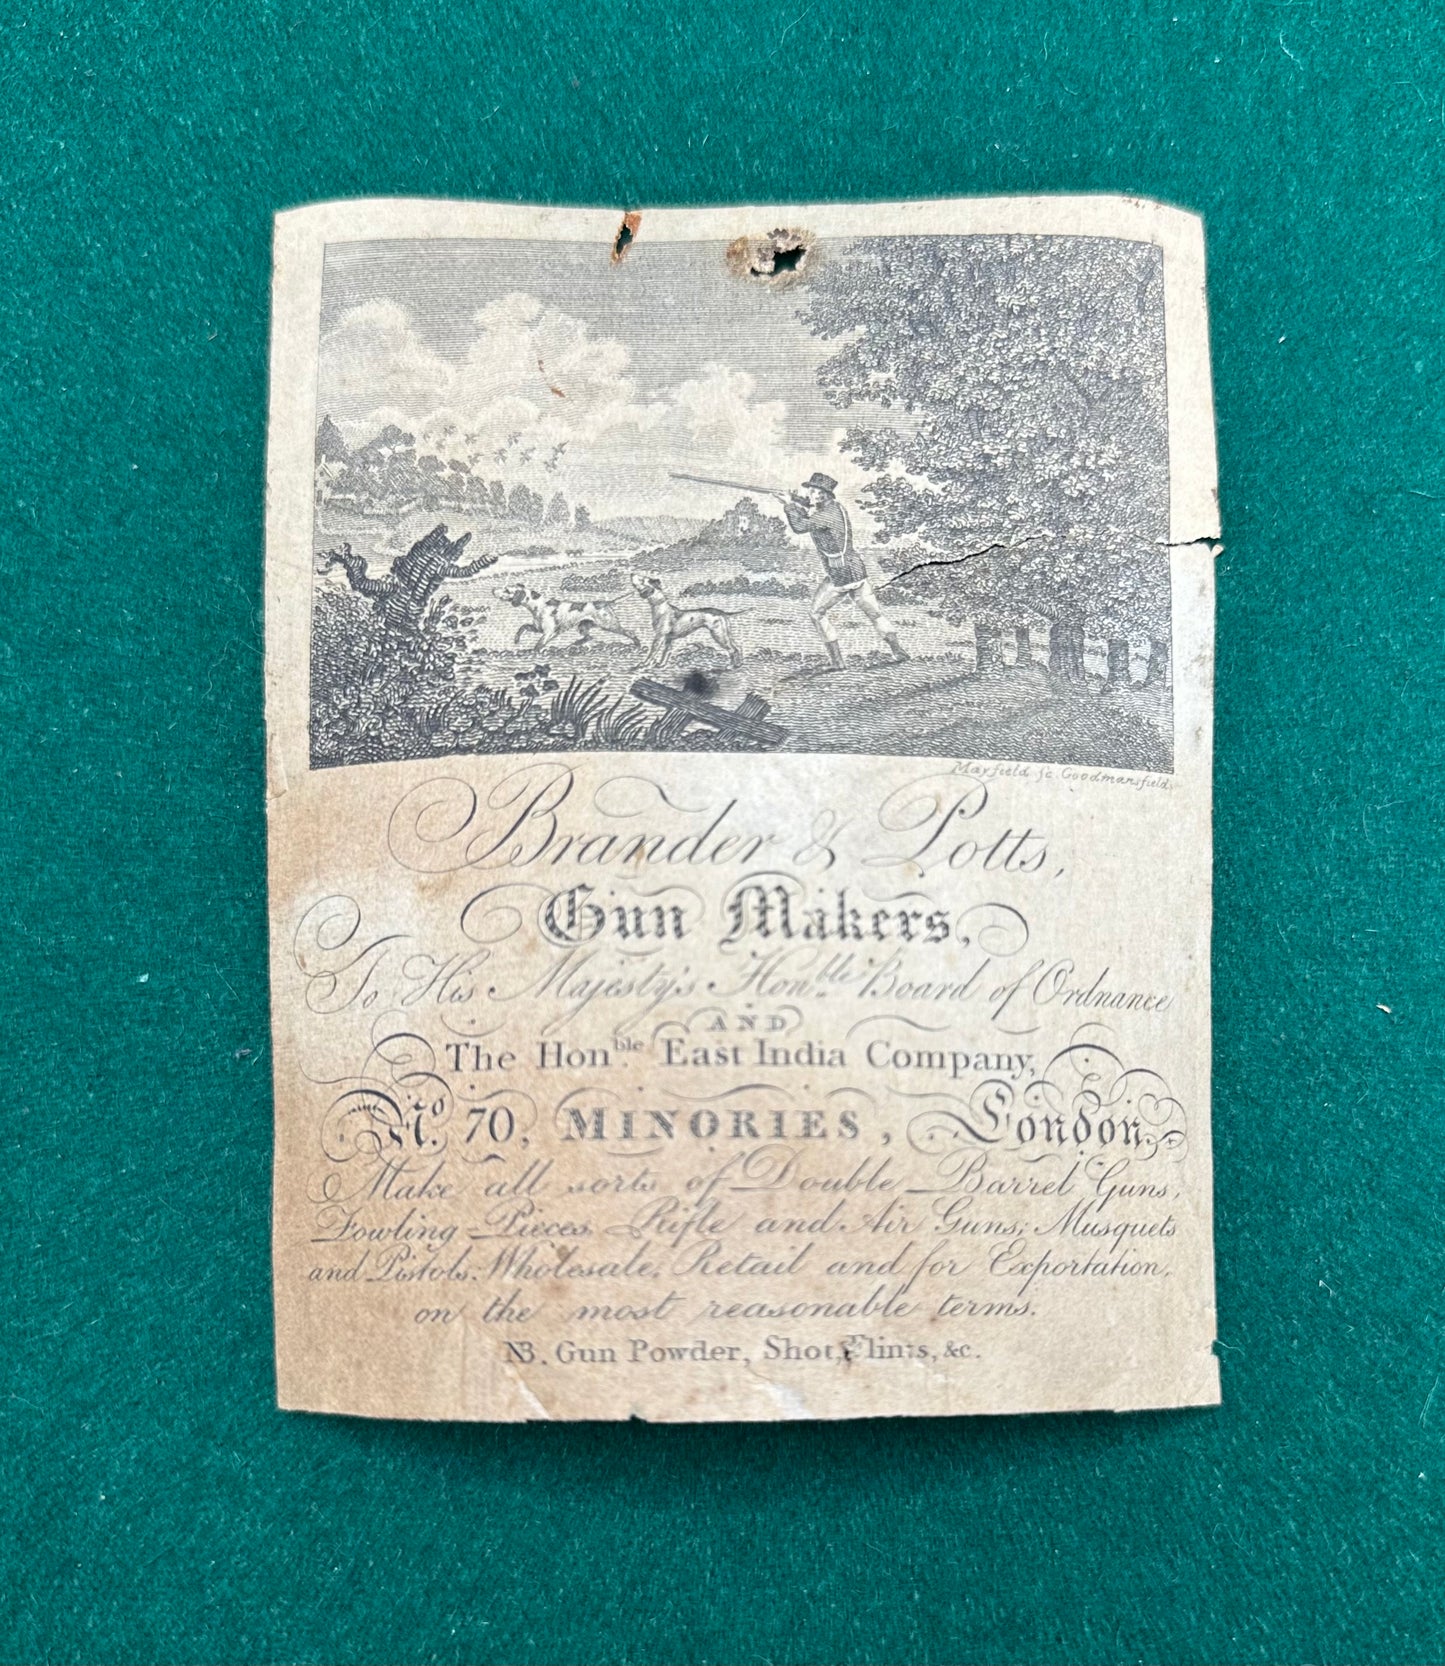 Mayfield sc. Goodmansfields
Brander & Potts,
Gun Makers,
To His Majesty's Honble. Board of Ordnance
AND
The Honble. East India Company,
No. 70, MINORIES, London.
Make all sorts of Double Barrel Guns,
Fowling-Pieces, Rifle and Air Guns; Musquets
and Pistols; Wholesale, Retail and for Exportation,
on the most reasonable terms.
NB. Gun Powder, Shot, Flints, &c.